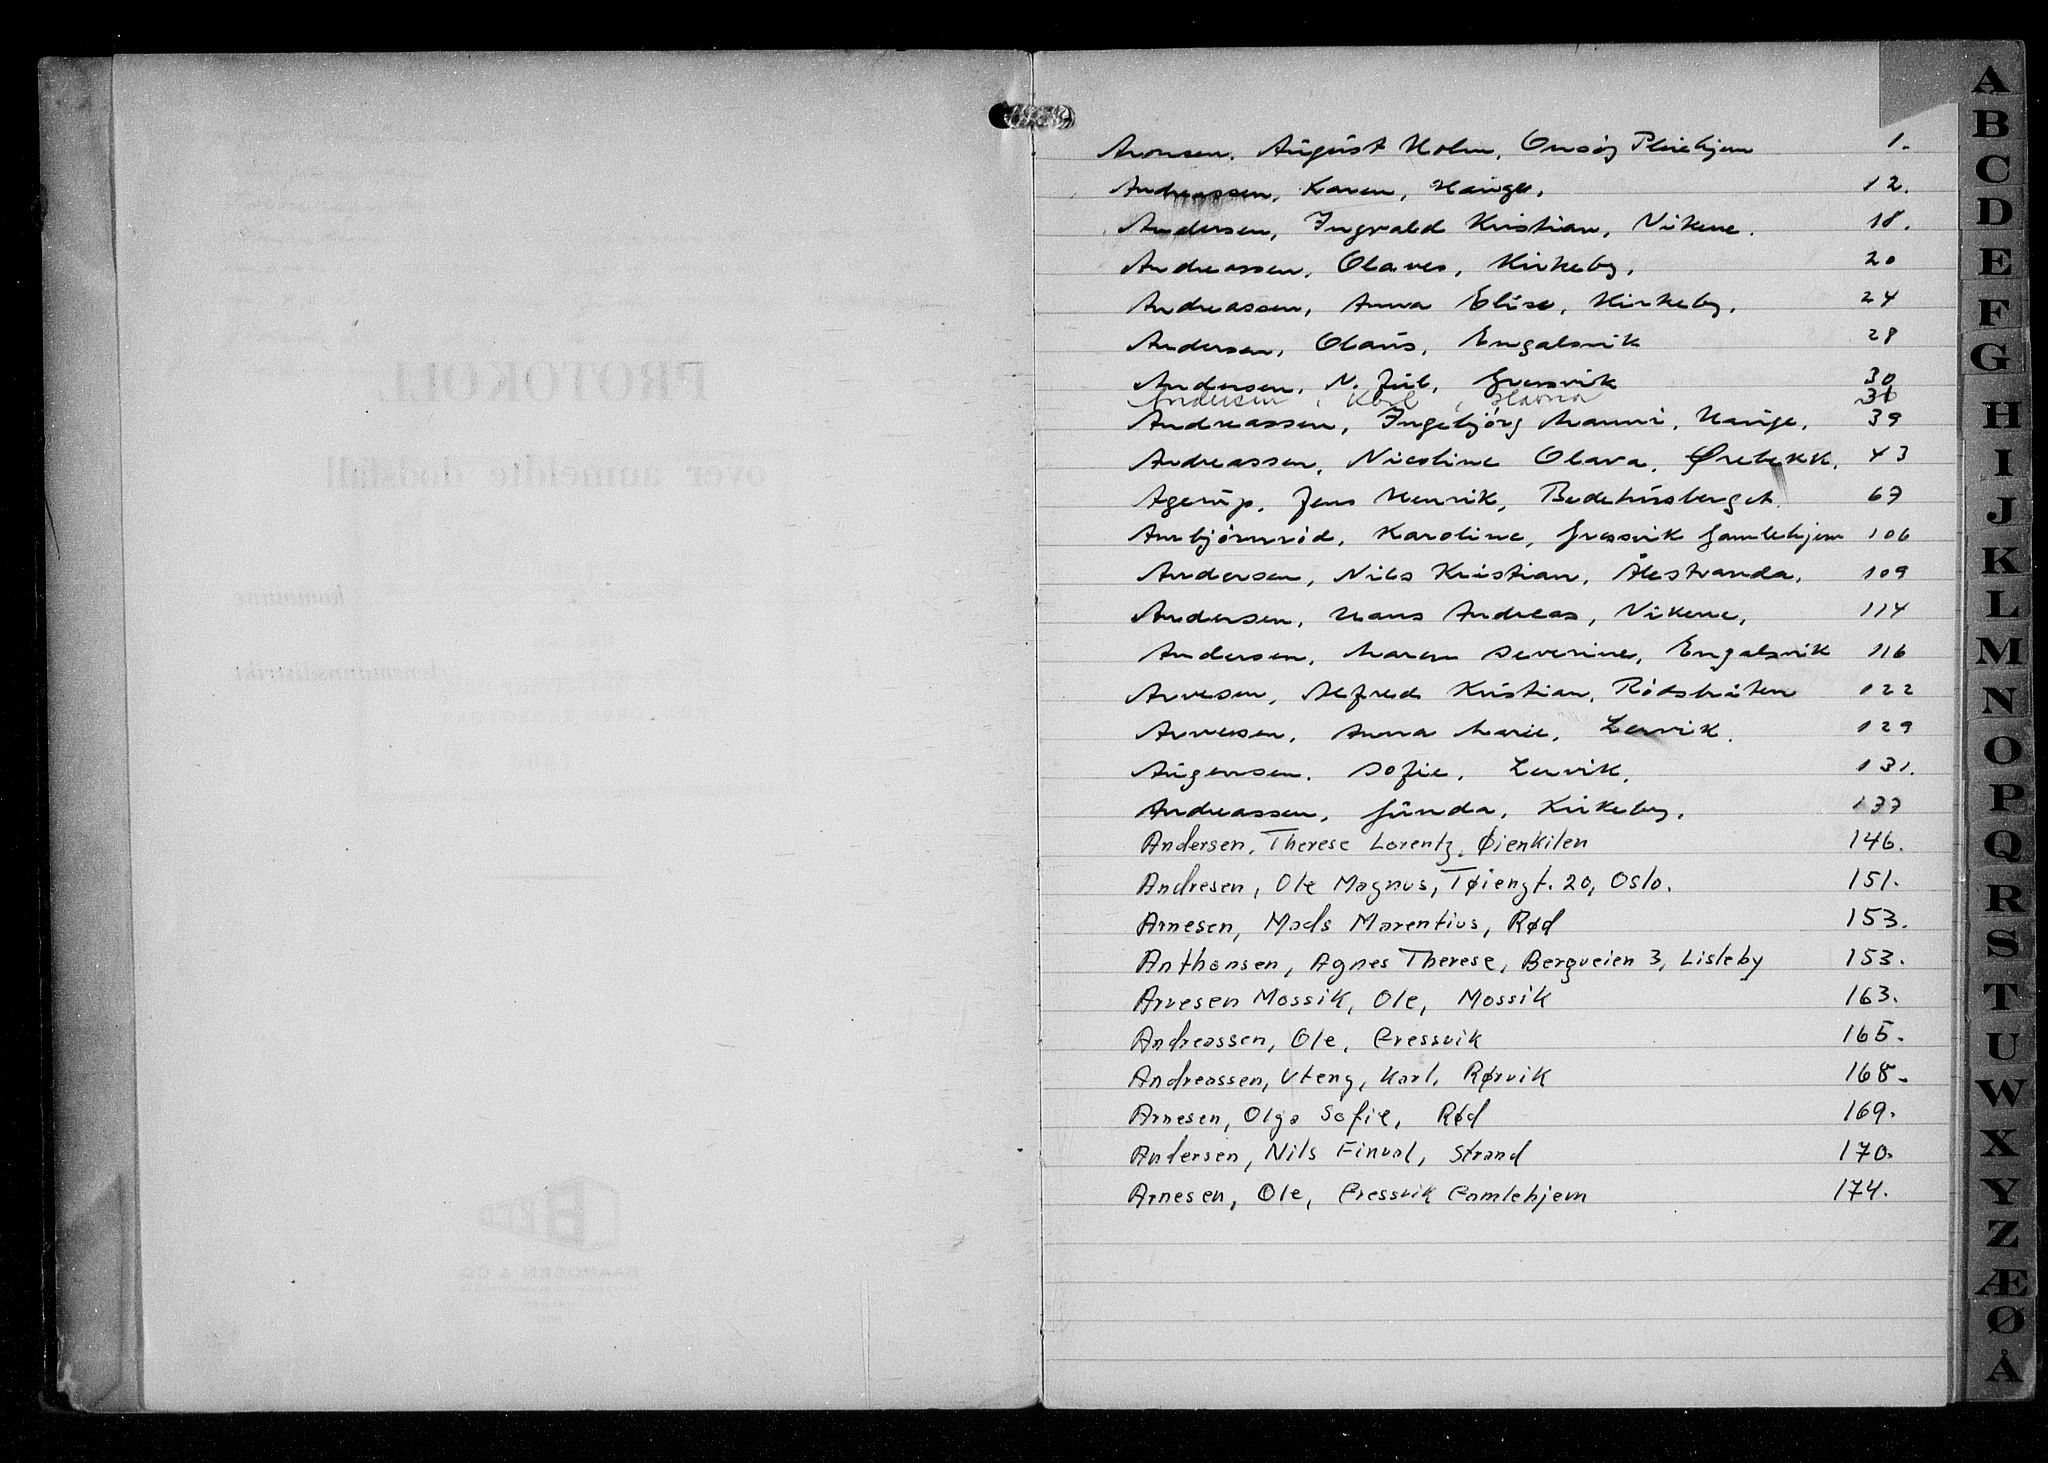 Aronsen, August Holm, Onsøy Pleiehjem 1.
Andreassen, Karen, Hauge, 12.
Andersen, Ingvald Kristian, Vikene. 18.
Andreassen, Olaves, Kirkeby, 20
Andreassen, Anna Elise, Kirkeby, 24
Andersen, Olaus, Engalsvik 28
Andersen, N. Jul. Gressvik 30
Andersen, Karl, 36
Andreassen, Ingebjörg Manni, Hauge, 39
Andreassen, Nicoline Olava, Ørebekk, 43
Agerup, Jens Henrik, Bedehusberget. 67
Aubjörnröd, Karoline, Gressvik Gamlehjem 106
Andersen, Nils Kristian, Ålestranda, 109
Andersen, Hans Andreas, Vikene, 114
Andersen, Maren Severine, Engalsvik 116
Arvesen, Alfred Kristian, Rödsbråten 122
Arvesen, Anna Marie, Lervik. 129
Augensen, Sofie, Lervik, 131.
Andreassen, Gunda, Kirkeby, 137
Andersen, Therese Lorentz, Øienkilen 146.
Andresen, Ole Magnus, Tøiengt. 20, Oslo. 151.
Arnesen, Mads Marentius, Rød 153.
Anthonsen, Agnes Therese, Bergveien 3, Lisleby 153.
Arvesen Mossik, Ole, Mossik 163.
Andreassen, Ole, Gressvik 165.
Andreassen, Uteng, Karl, Rørvik 168.
Arnesen, Olga Sofie, Rød 169.
Andersen, Nils Finval, Strand 170.
Arnesen, Ole, Gressvik Gamlehjem 174.
A
B
C
D
E
F
G
H
I
J
K
L
M
N
O
P
Q
R
S
T
U
W
X
Y
Z
Æ
Ø
Å